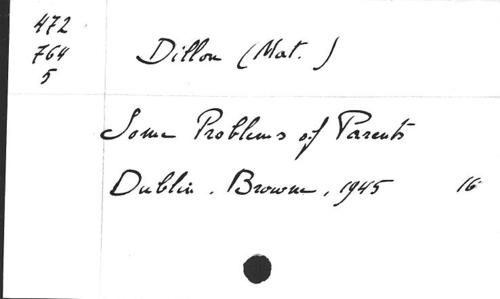 472
764
5
Dillon (Mat.)
Some Problems of Parents
Dublin. Browne, 1945 16